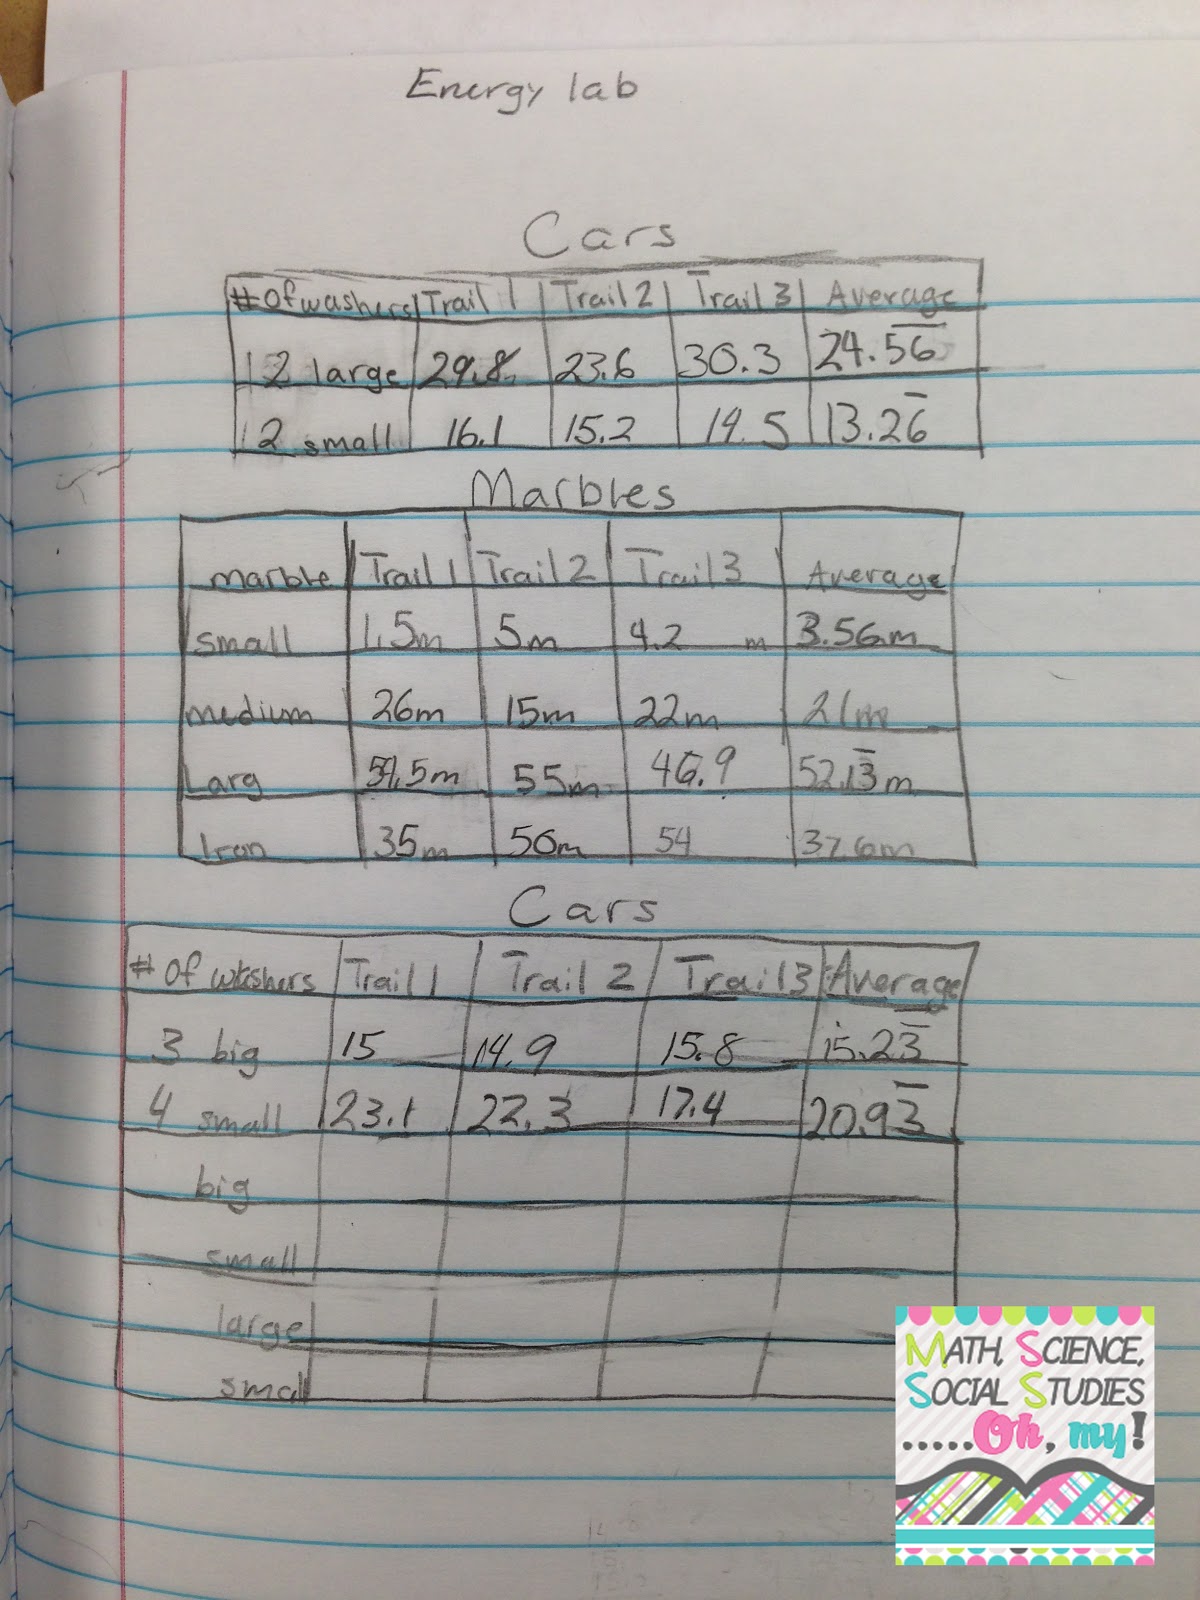 Energy lab
Cars
# Of washers Trail 1 Trail 2 Trail 3 Average
12 large 29.8 23.6 30.3 24.56
12 small 16.1 15.2 14.5 13.26
Marbles
marble Trail 1 Trail 2 Trail 3 Average
small 1.5m 5m 4.2 m 3.56m
medium 26m 15m 22m 21m
Larg 5m 55m 46.9 52.13 m
Iron 35m 50m 54 37.6m
Cars
# Of washers Trail 1 Trail 2 Trail 3 Average
3 big 15 14.9 15.8 15.23
4 small 23.1 22.3 17.4 20.93
big
small
large
small
MATH, SCIENCE,
SOCIAL STUDIES
.....Oh, my!